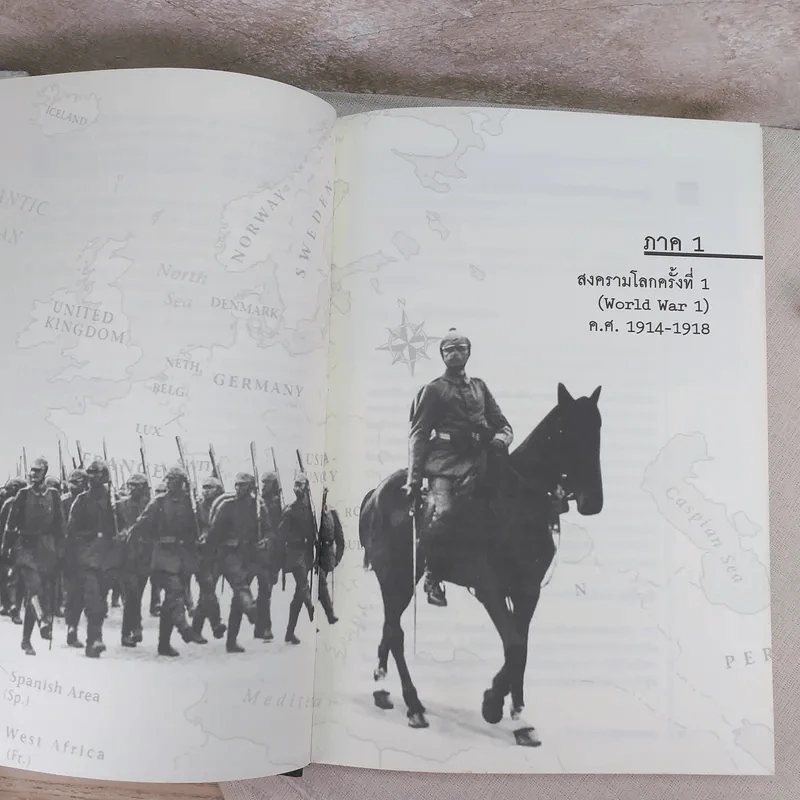 ICELAND
NORWAY
SWEDEN
North
Sea
DENMARK
UNITED
KINGDOM
NETH.
BELG.
GERMANY
LUX
Spanish Area
(Sp.)
West Africa
(Fr.)
ภาค 1
สงครามโลกครั้งที่ 1
(World War 1)
ค.ศ. 1914-1918
N
Caspian Sea
N